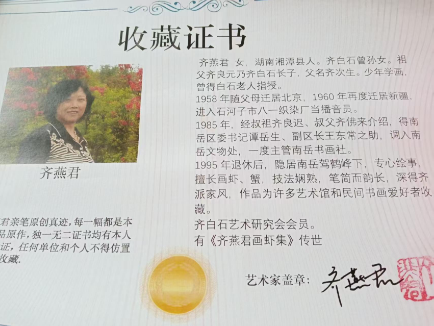 收藏证书
齐燕君 女，湖南湘潭县人。齐白石曾孙女。祖
父齐良元乃齐白石长子，父名齐次生。少年学画，
曾得白石老人指授。
1958 年随父母迁居北京，1960 年再度迁居新疆，
进入石河子市八一织染厂当播音员。
1985 年，经叔祖齐良迟、叔父齐佛来介绍，得南
岳区委书记谭岳生、副区长王东常之助，调入南
岳文物处，一度主管南岳书画社。
1995 年退休后，隐居南岳驾鹤峰下，专心绘事，
擅长画虾、蟹，技法娴熟，笔简而韵长，深得齐
派家风，作品为许多艺术馆和民间书画爱好者收
藏。
齐白石艺术研究会会员。
有《齐燕君画虾集》传世
齐燕君
君亲笔原创真迹，每一幅都是本
品原作，独一无二证书均有本人
证，任何单位和个人不得仿置
收藏．
艺术家盖章：
齐燕君